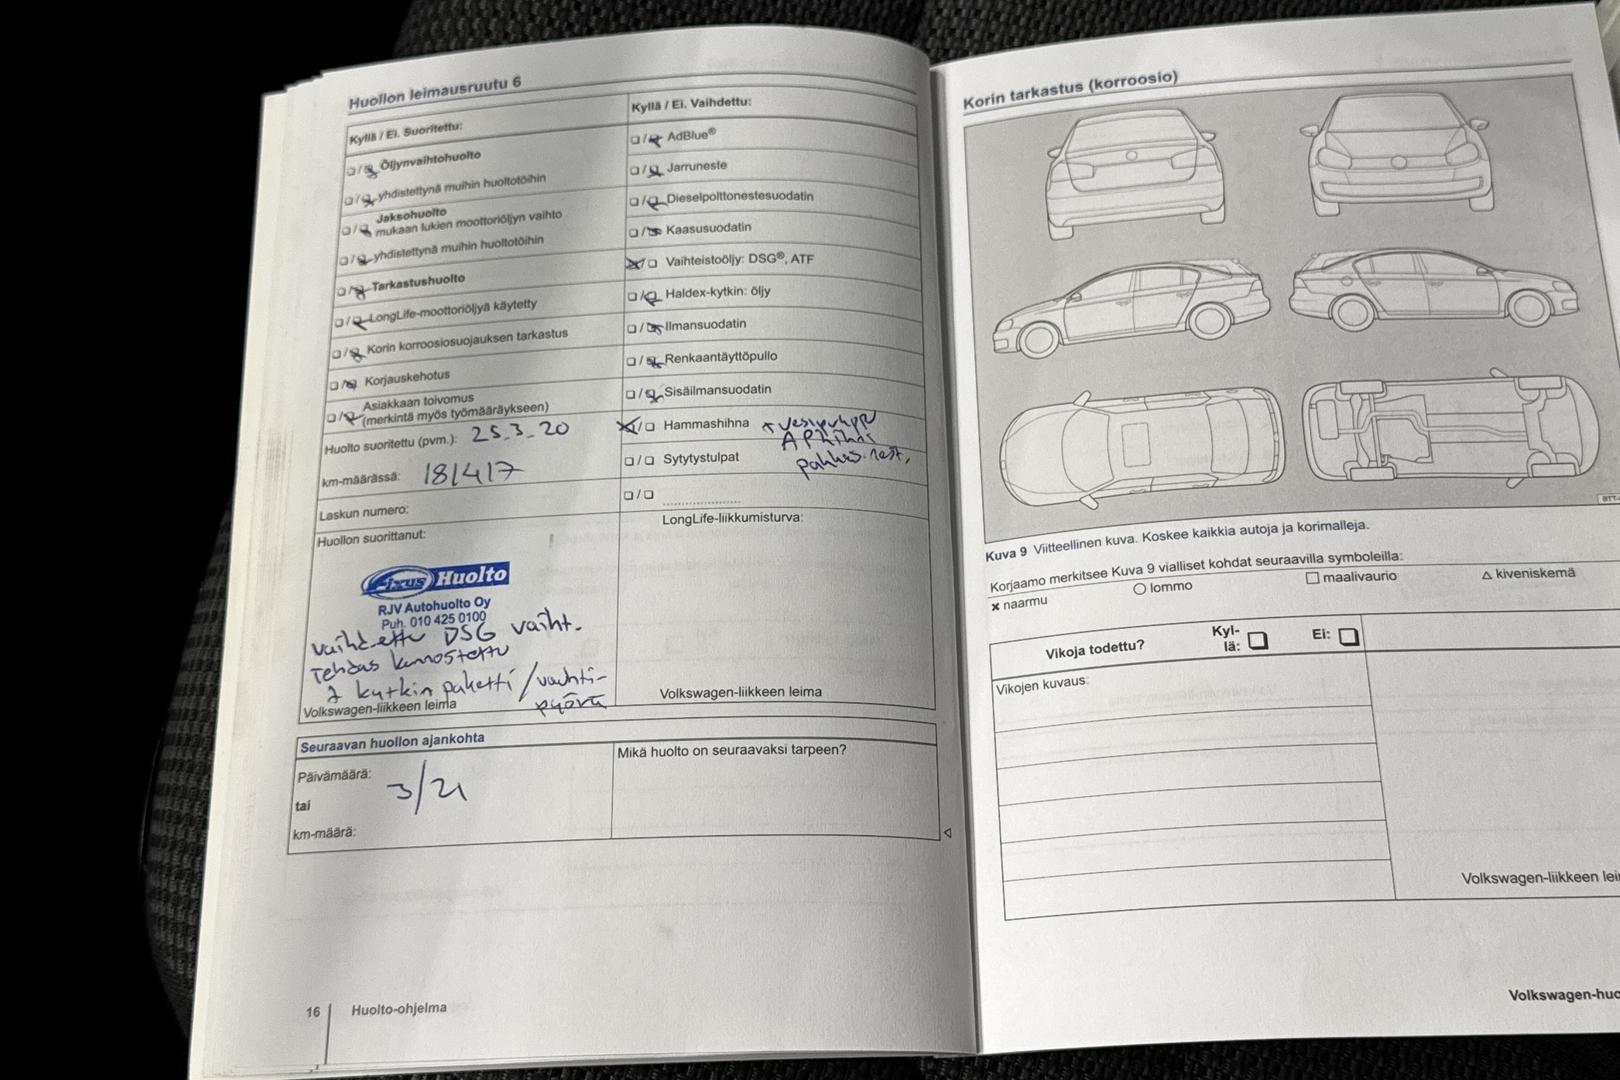 Huollon leimausruutu 6
Kyllä / Ei. Suoritettu:
Öljynvaihtohuolto
yhdistettynä muihin huoltotöihin
Jaksohuolto
mukaan lukien moottoriöljyn vaihto
yhdistettynä muihin huoltotöihin
Tarkastushuolto
LongLife-moottoriöljyä käytetty
Korin korroosiosuojauksen tarkastus
Korjauskehotus
Asiakkaan toivomus
(merkintä myös työmääräykseen)
Huolto suoritettu (pvm.): 25.3.20
km-määrässä: 181417
Laskun numero:
Huollon suorittanut:
Fixus Huolto
RJV Autohuolto Oy
Puh. 010 425 0100
Vaihdettu DSG vaiht.
Tehdas kunnostettu
2 kytkin paketti / vauhti-
pyörä
Volkswagen-liikkeen leima
Kyllä / Ei. Vaihdettu:
AdBlue®
Jarruneste
Dieselpolttonestesuodatin
Kaasusuodatin
Vaihteistoöljy: DSG®, ATF
Haldex-kytkin: öljy
Ilmansuodatin
Renkaantäyttöpullo
Sisäilmansuodatin
Hammashihna + vesipumppu
APhihna
pakkasnest.
Sytytystulpat
LongLife-liikkumisturva:
Volkswagen-liikkeen leima
Seuraavan huollon ajankohta
Päivämäärä: 3/21
tai
km-määrä:
Mikä huolto on seuraavaksi tarpeen?
16 Huolto-ohjelma
Korin tarkastus (korroosio)
Kuva 9 Viitteellinen kuva. Koskee kaikkia autoja ja korimalleja.
Korjaamo merkitsee Kuva 9 vialliset kohdat seuraavilla symboleilla:
× naarmu ○ lommo □ maalivaurio △ kiveniskemä
Vikoja todettu? Kyl-
lä: Ei:
Vikojen kuvaus:
Volkswagen-liikkeen lei
Volkswagen-huo